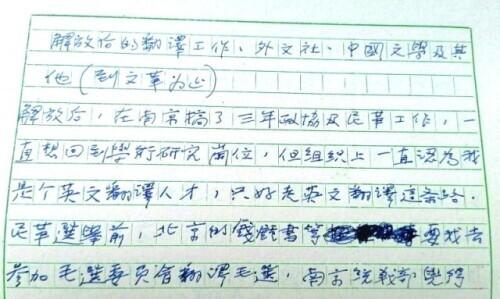 解放后的翻譯工作，外文社、中國文學及其
他（到文革为止）
解放后，在南京搞了三年政協及民革工作，一
直想回到學術研究崗位，但组织上一直認为我
是个英文翻譯人才，只好走英文翻譯這条路．
民革選舉前，北京的錢鍾書等要我去
参加毛選委员會翻譯毛選，南京統戰部覺得